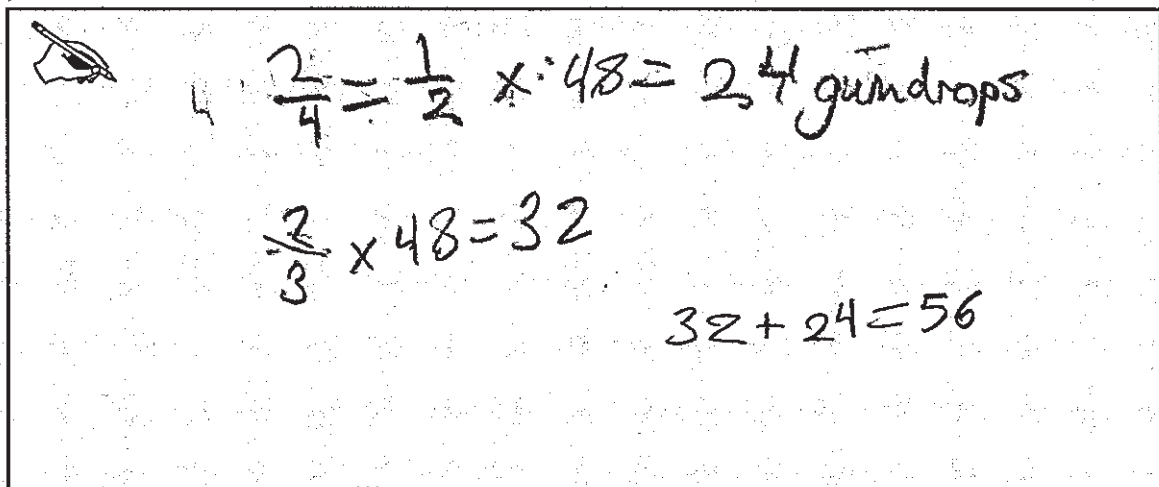 4 2/4 = 1/2 x 48 = 24 gumdrops
2/3 x 48 = 32
32 + 24 = 56